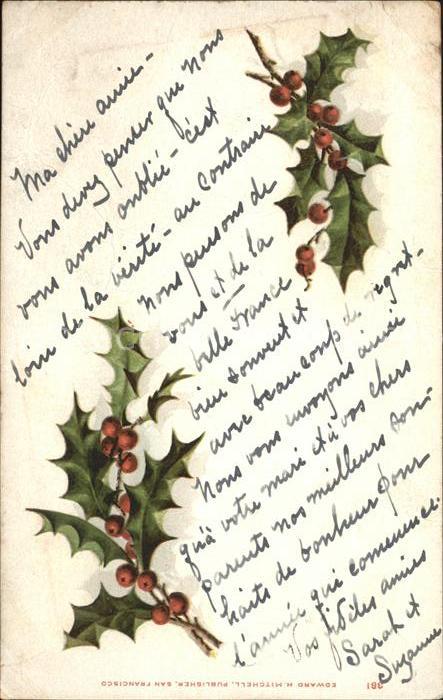 Ma chère amie -
Vous devez penser que nous
vous avons oublié - c'est
loin de la vérité - au contraire
nous pensons de
vous et de la
belle France
bien souvent et
avec beaucoup de regret -
Nous vous envoyons ainsi
qu'à votre mari et à vos chers
parents nos meilleurs sou-
haits de bonheur pour
l'année qui commence.
Vos fidèles amies
Sarah et
Suzanne
EDWARD H. MITCHELL, PUBLISHER, SAN FRANCISCO
381